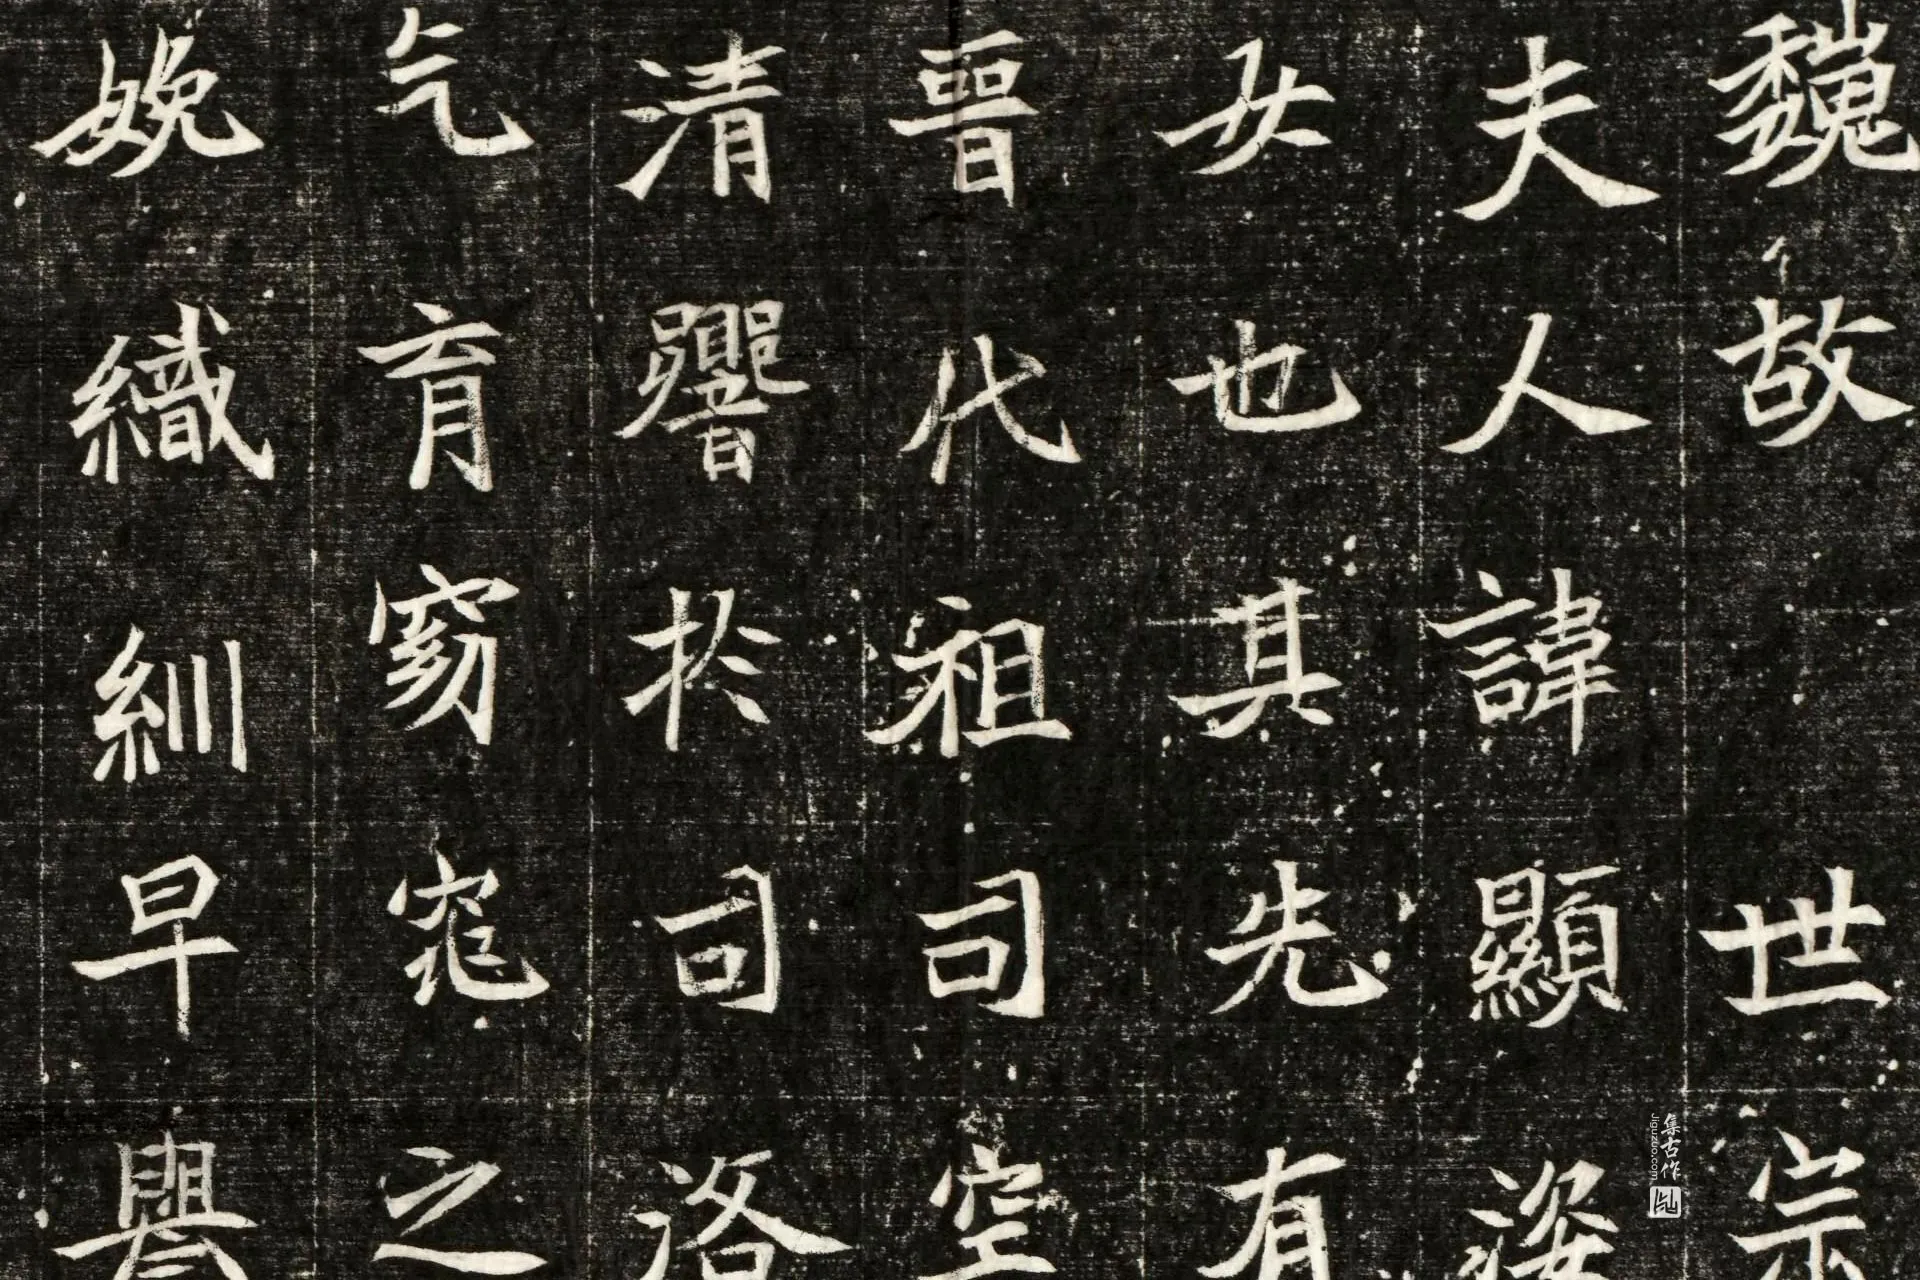 魏故 世宗
夫人諱顯姿
女也其先有
晉代祖司空
清響於司洛
气育窈窕之
婉織紃早譽
集古作
Jiguzuo.com